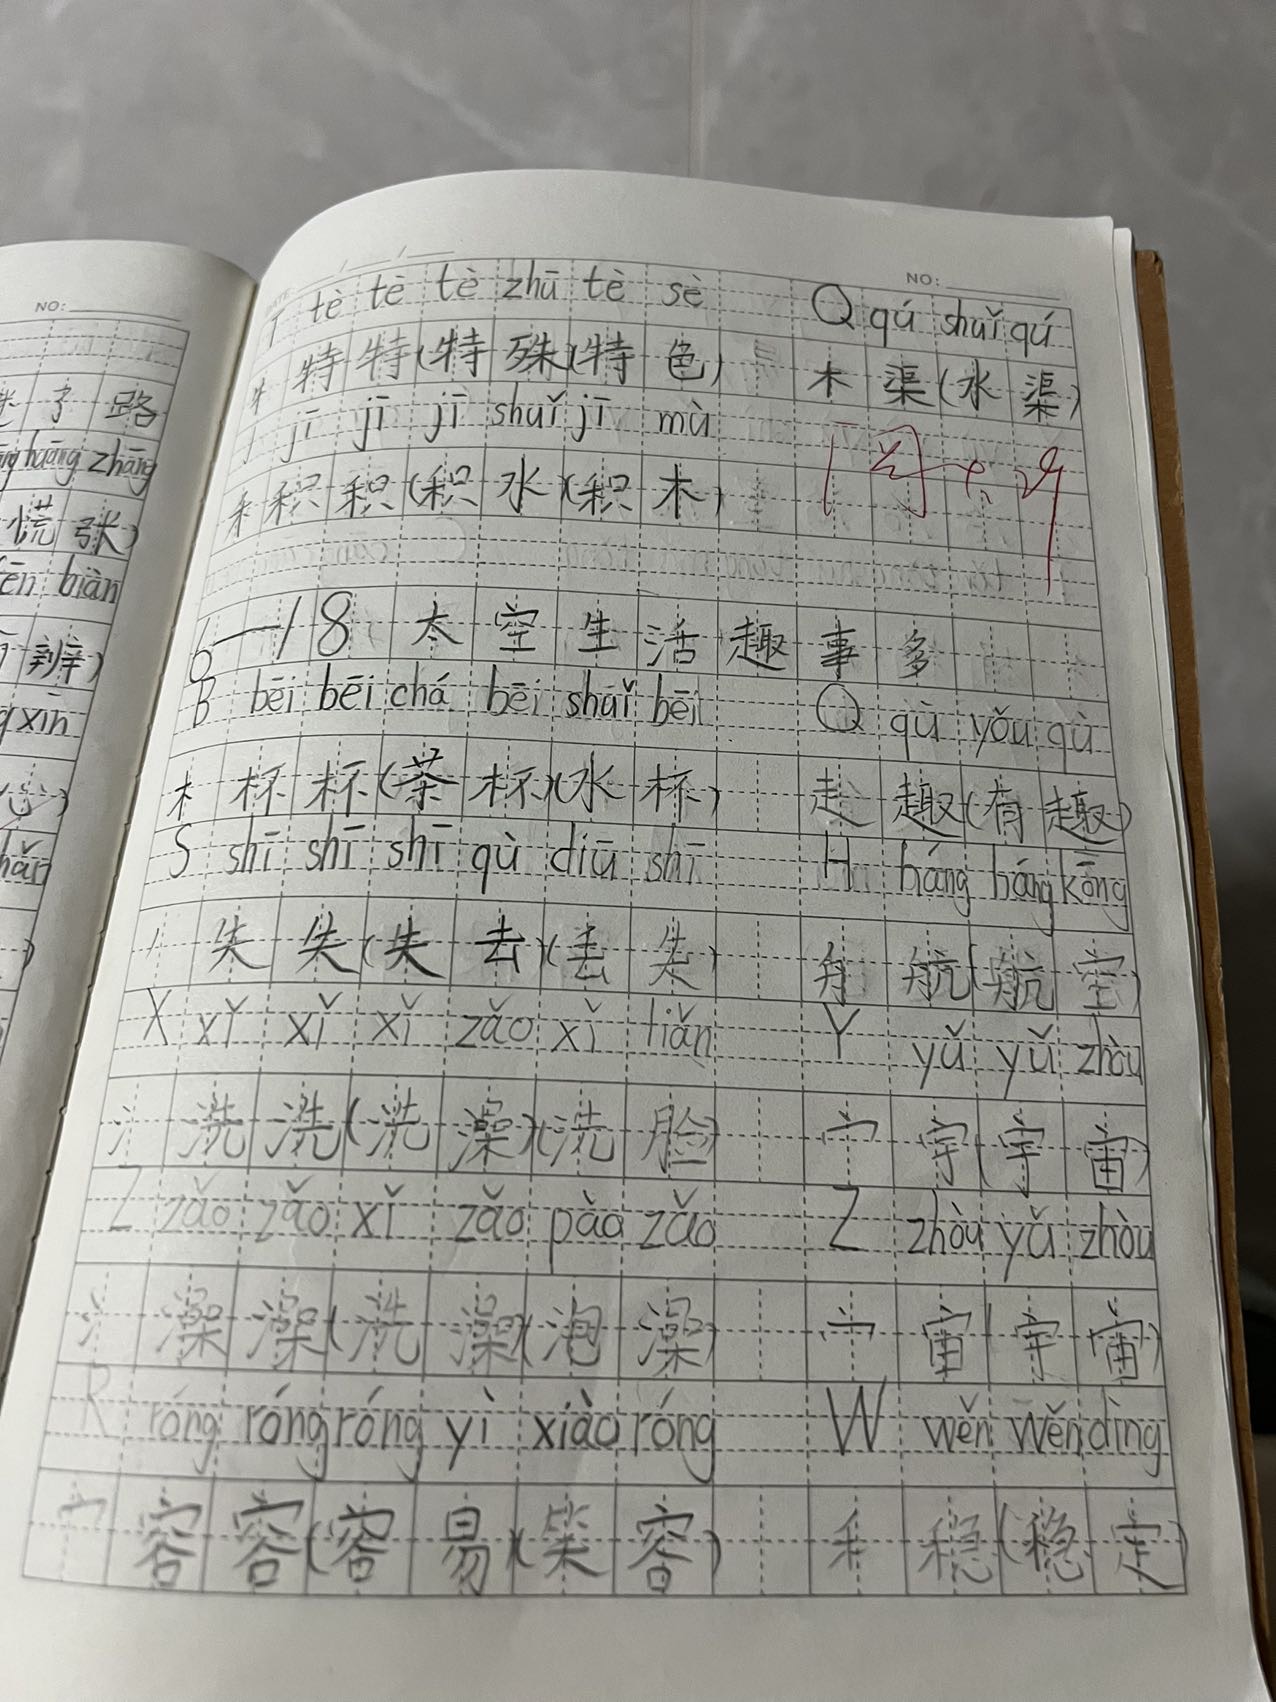 NO:
NO:
迷 了 路
huāng zhāng
慌 张)
biàn
辨)
xīn
T tè tè tè zhū tè sè Q qú shuǐ qú
牜 特 特 (特 殊)(特 色) 木 渠 (水 渠)
J jī jī jī shuǐ jī mù
禾 积 积 (积 水)(积 木)
6—18 太 空 生 活 趣 事 多
B bēi bēi chá bēi shuǐ bēi Q qù yǒu qù
木 杯 杯 (茶 杯)(水 杯) 走 趣 (有 趣)
S shī shī shī qù diū shī H háng háng kōng
丿 失 失 (失 去)(丢 失) 舟 航 (航 空)
X xǐ xǐ xǐ zǎo xǐ liǎn Y yǔ yǔ zhòu
氵 洗 洗 (洗 澡)(洗 脸) 宀 宇 (宇 宙)
Z zǎo zǎo xǐ zǎo pào zǎo Z zhòu yǔ zhòu
氵 澡 澡 (洗 澡)(泡 澡) 宀 宙 (宇 宙)
R róng róng róng yì xiào róng W wěn wěn dìng
宀 容 容 (容 易)(笑 容) 禾 稳 (稳 定)